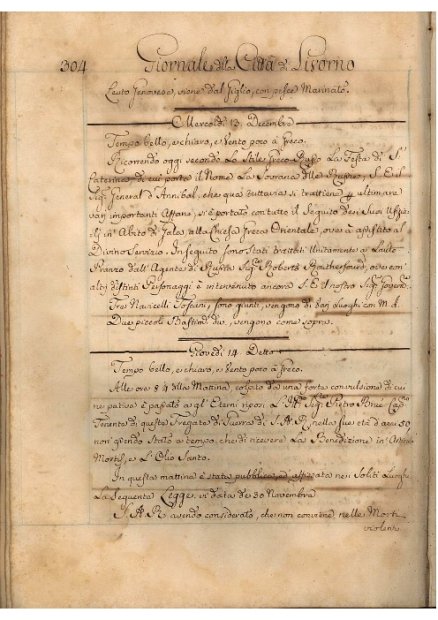 304 Giornale della Città di Livorno
Leuto Genovese, viene dal Giglio, con pesce Marinato.
Mercoldì 13. Decembre
Tempo bello, e chiaro, e Vento poco à Greco.
Ricorrendo oggi secondo lo Stile Greco Russo La Festa di S.
Caterina, di cui porta il Nome La Sovrana delle Russie, S. E. il
Sig. General d'Annibal, che qua tuttavia si trattiene
varj importanti Affari, si è portato con tutto il Seguito dei Suoi
in Abito di Gala, alla Chiesa Greca Orientale, ove è assistito al
Divino Servizio. In seguito sono Stati trattati Unitamente a Lauto
Pranzo dall'Agente di Russia Sig. Roberto Rutherfoord, ove con
altri distinti Personaggi è intervenuto ancora S. E. il nostro Sig.
Tre Navicelli Toscani, sono giunti, vengono di Van Luoghi con M. a.
Due piccoli Bastim. du., vengono come sopra.
Giovedì 14 Detto
Tempo bello, e chiaro, e Vento poco à Greco.
Alle ore 8 4 della Mattina, colpito da una forte convulsione di cui
ne pativa è passato agl'Eterni riposi L' Ill. Sig. Pietro Cap.
Tenente di questa Fregata di Guerra di S. A. R. nella sua età d'anni 50,
non essendo Stato a tempo, che di ricevere La Benedizione in Articulo
Mortis, e L'Olio Santo.
In questa mattina è stata pubblicata, ed affissata nei Soliti Luoghi
La Seguente Legge, in data de 30 Novembre
S. A. R. avendo considerato, che non conviene nelle Morti
violen